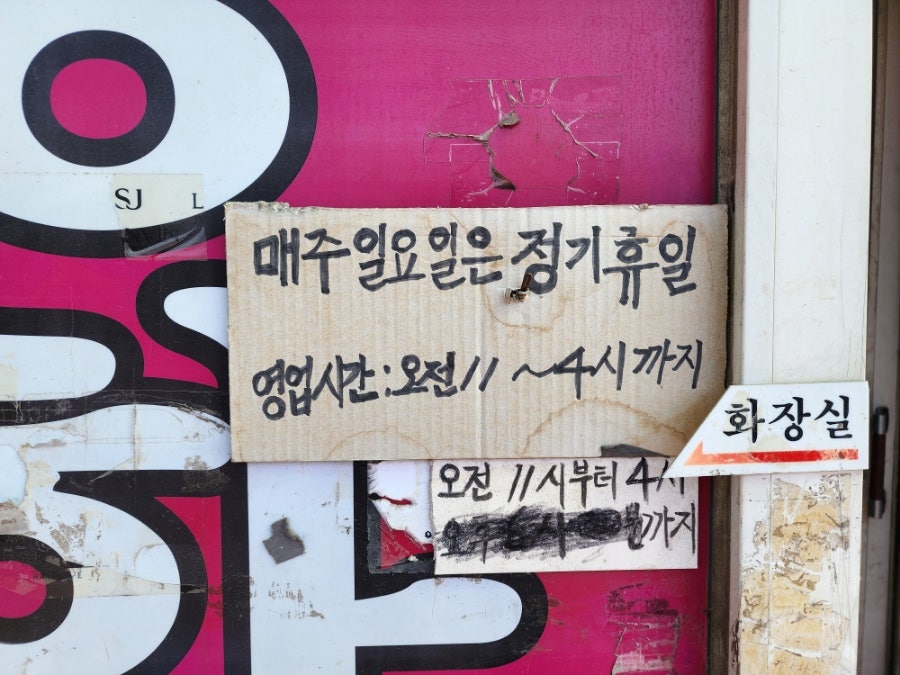 SJ L
매주 일요일은 정기휴일
영업시간:오전 11 ~4시 까지
화장실
오전 11시부터 4시
까지